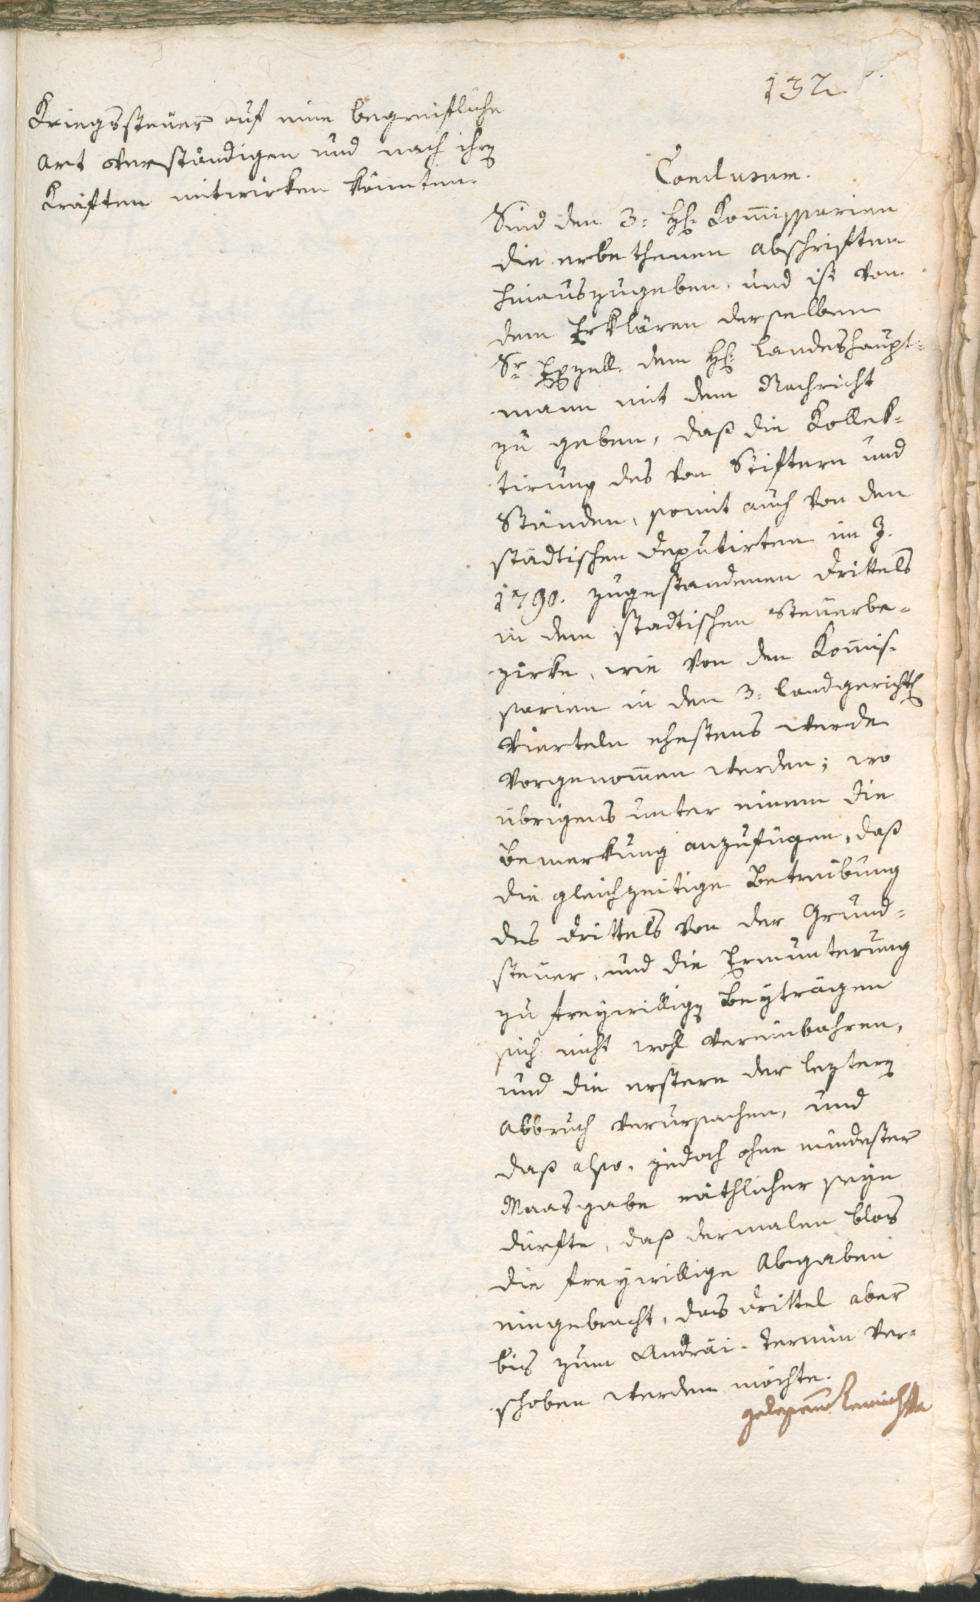 132.
Kriegssteuer auf eine begreifliche
Art verständigen und nach ihrn
Kräften mitwirken könnten.
Conclusum.
Sind den 3: HH: Kommissarien
die erbethenen Abschriften
hinauszugeben, und ist von
dem Erklären derselben
Sr Exzell. dem H: Landeshaupt=
mann mit dem Nachricht
zu geben, daß die Kollek=
tirung des von Stiftern und
Ständen, somit auch von den
städtischen Deputirten im J.
1790. zugestandenen Drittels
in dem städtischen Steuerbe=
zirke, wie von den Kommis=
sarien in den 3: Landgerichts
Vierteln ehestens werde
vorgenommen werden; wo
übrigens unter einem die
Bemerkung anzufügen, daß
die gleichzeitige Betreibung
des Drittels von der Grund=
steuer, und die Ermunterung
zu freywillign Beyträgen
sich nicht wohl vereinbahren,
und die erstere der leztern
Abbruch verursachen, und
daß also, jedoch ohne mindester
Maasgabe räthlicher seyn
dürfte, daß dermalen blos
die freywillige Abgaben
eingebracht, das Drittel aber
bis zum Andräi-Termin ver=
schoben werden möchte.